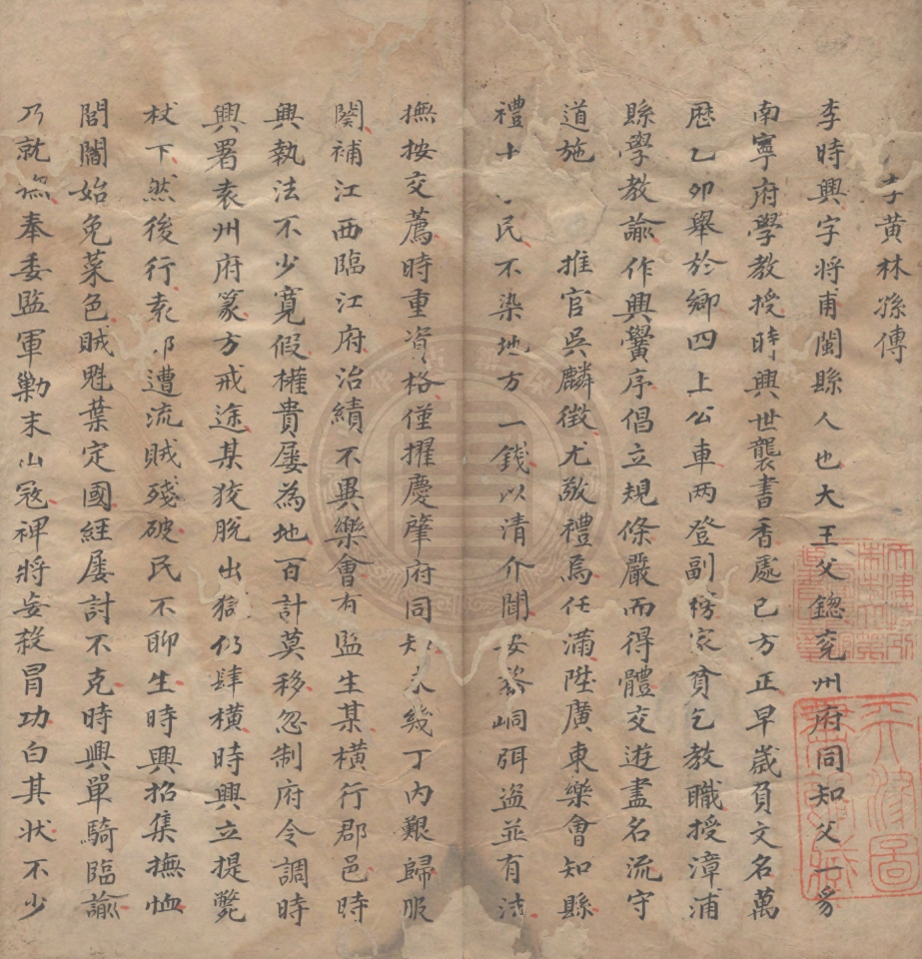 李黄林孫傳
李時興字將甫閩縣人也大王父鍃兖州府同知父一豸
南寧府學教授時興世襲書香處已方正早歲負文名萬
歷乙卯舉於鄉四上公車两登副榜家貧乞教職授漳浦
縣學教諭作興黌序倡立規條嚴而得體交遊盡名流守
道施 推官吳麟徵尤敬禮焉任滿陞廣東樂會知縣
禮士 民不染地方一錢以清介聞安黎峒弭盗並有法
撫按交薦時重資格僅擢慶肇府同知未幾丁内艱歸服
闋補江西臨江府治績不異樂會有監生某橫行郡邑時
興執法不少寬假權貴屡為地百計莫移忽制府令調時
興署袁州府篆方戒途某狡脫出獄仍肆橫時興立提斃
杖下然後行袁郡遭流賊殘破民不聊生時興招集撫恤
閭閻始免菜色賊魁葉定國經屡討不克時興單騎臨諭
乃就撫奉委監軍勦末山寇裨將妄殺冒功白其状不少